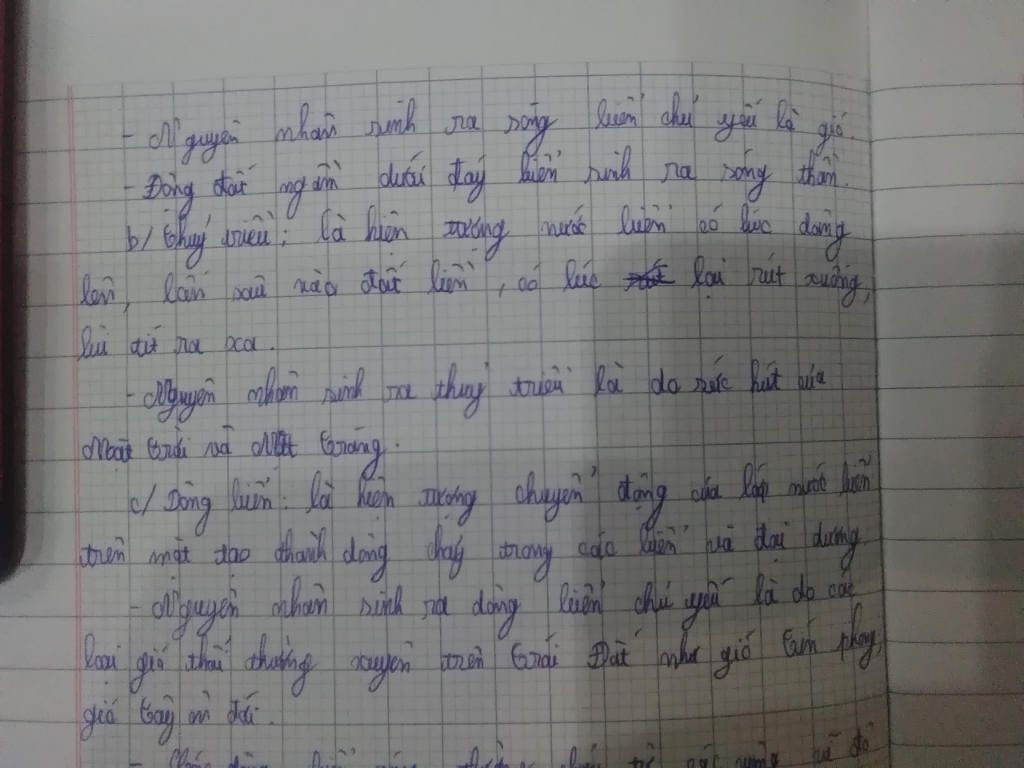 - Nguyên nhân sinh ra sóng biển chủ yếu là gió.
- Động đất ngầm dưới đáy biển sinh ra sóng thần.
b/ Thuỷ triều: là hiện tượng nước biển có lúc dâng
lên, lấn sâu vào đất liền, có lúc lại rút xuống,
lùi tít ra xa.
- Nguyên nhân sinh ra thuỷ triều là do sức hút của
Mặt trời và Mặt trăng.
c/ Dòng biển: là hiện tượng chuyển động của lớp nước biển
trên mặt tạo thành dòng chảy trong các biển và đại dương.
- Nguyên nhân sinh ra dòng biển chủ yếu là do các
loại gió thổi thường xuyên trên trái Đất như gió tín phong,
gió tây ôn đới.